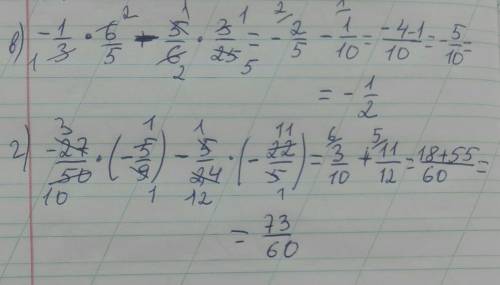 в) -1/3 · 6/5 - 5/6 · 3/25 = -2/5 - 1/10 = (-4-1)/10 = -5/10 =
= -1/2
г) -27/50 · (-5/9) - 5/24 · (-22/5) = 3/10 + 11/12 = (18+55)/60 =
= 73/60